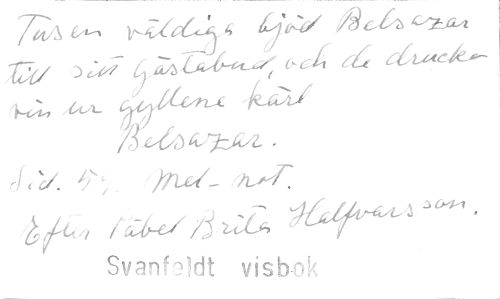 Tusen väldiga bjöd Belsazar
till sitt gästabud, och de drucko
vin ur gyllene kärl
Belsazar.
Sid. 59. Mel-not.
Efter Brita Halfvarsson.
Svanfeldt visbok